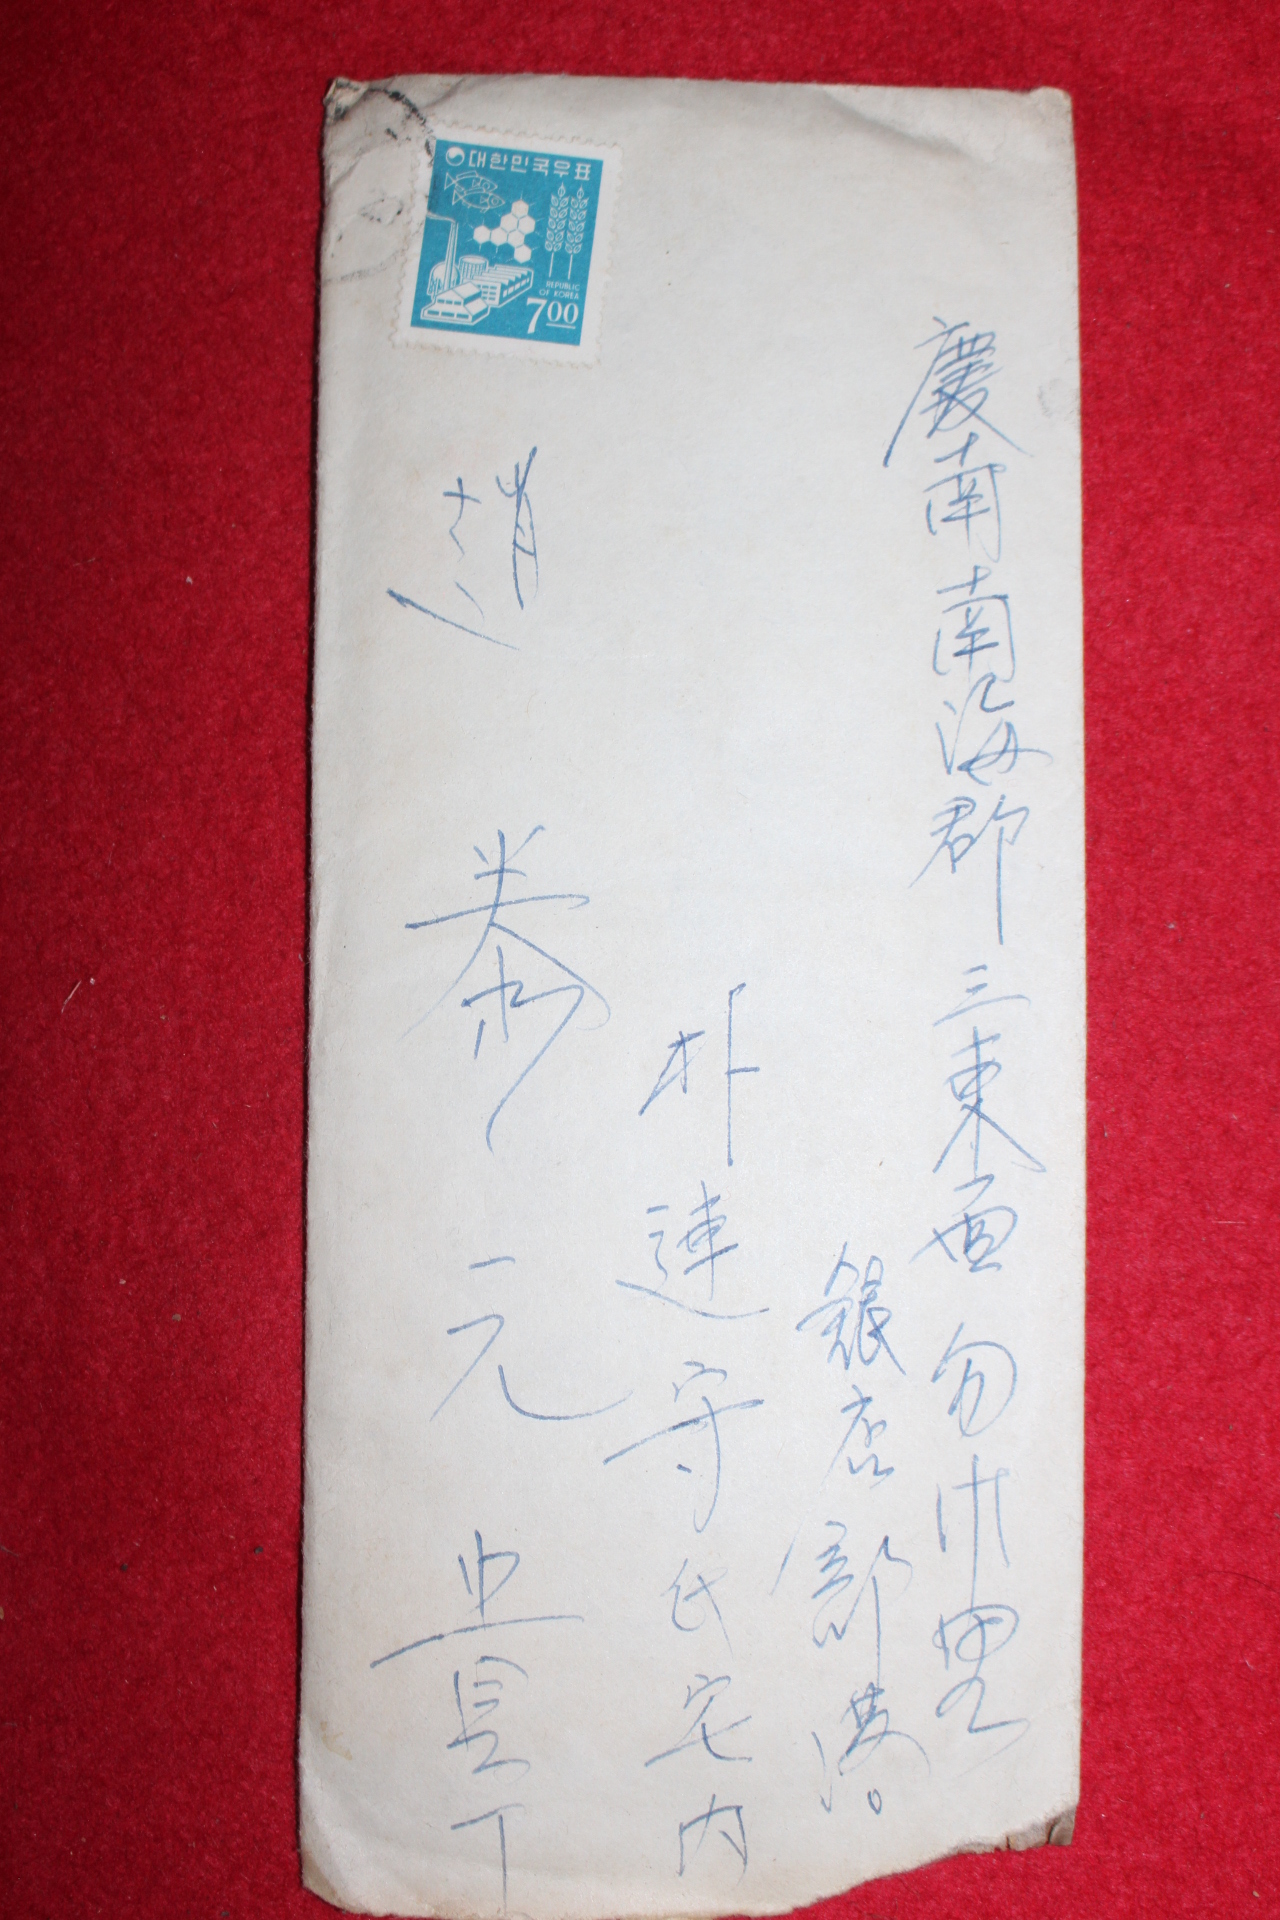 대한민국우표
REPUBLIC
OF KOREA
700
慶南南海郡 三東面 勿巾里
銀店部落。
朴連守氏宅内
趙 泰 元 貴下